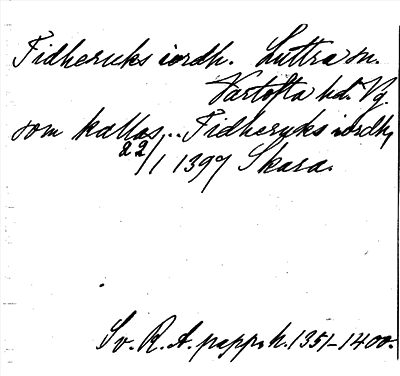 Fidheruks iordh. Luttra sn.
Vartofta hd. Vg.
som kallas... Fidheruks iordh,
22/1 1397 Skara.
Sv. R. A. papp. h. 1351-1400.